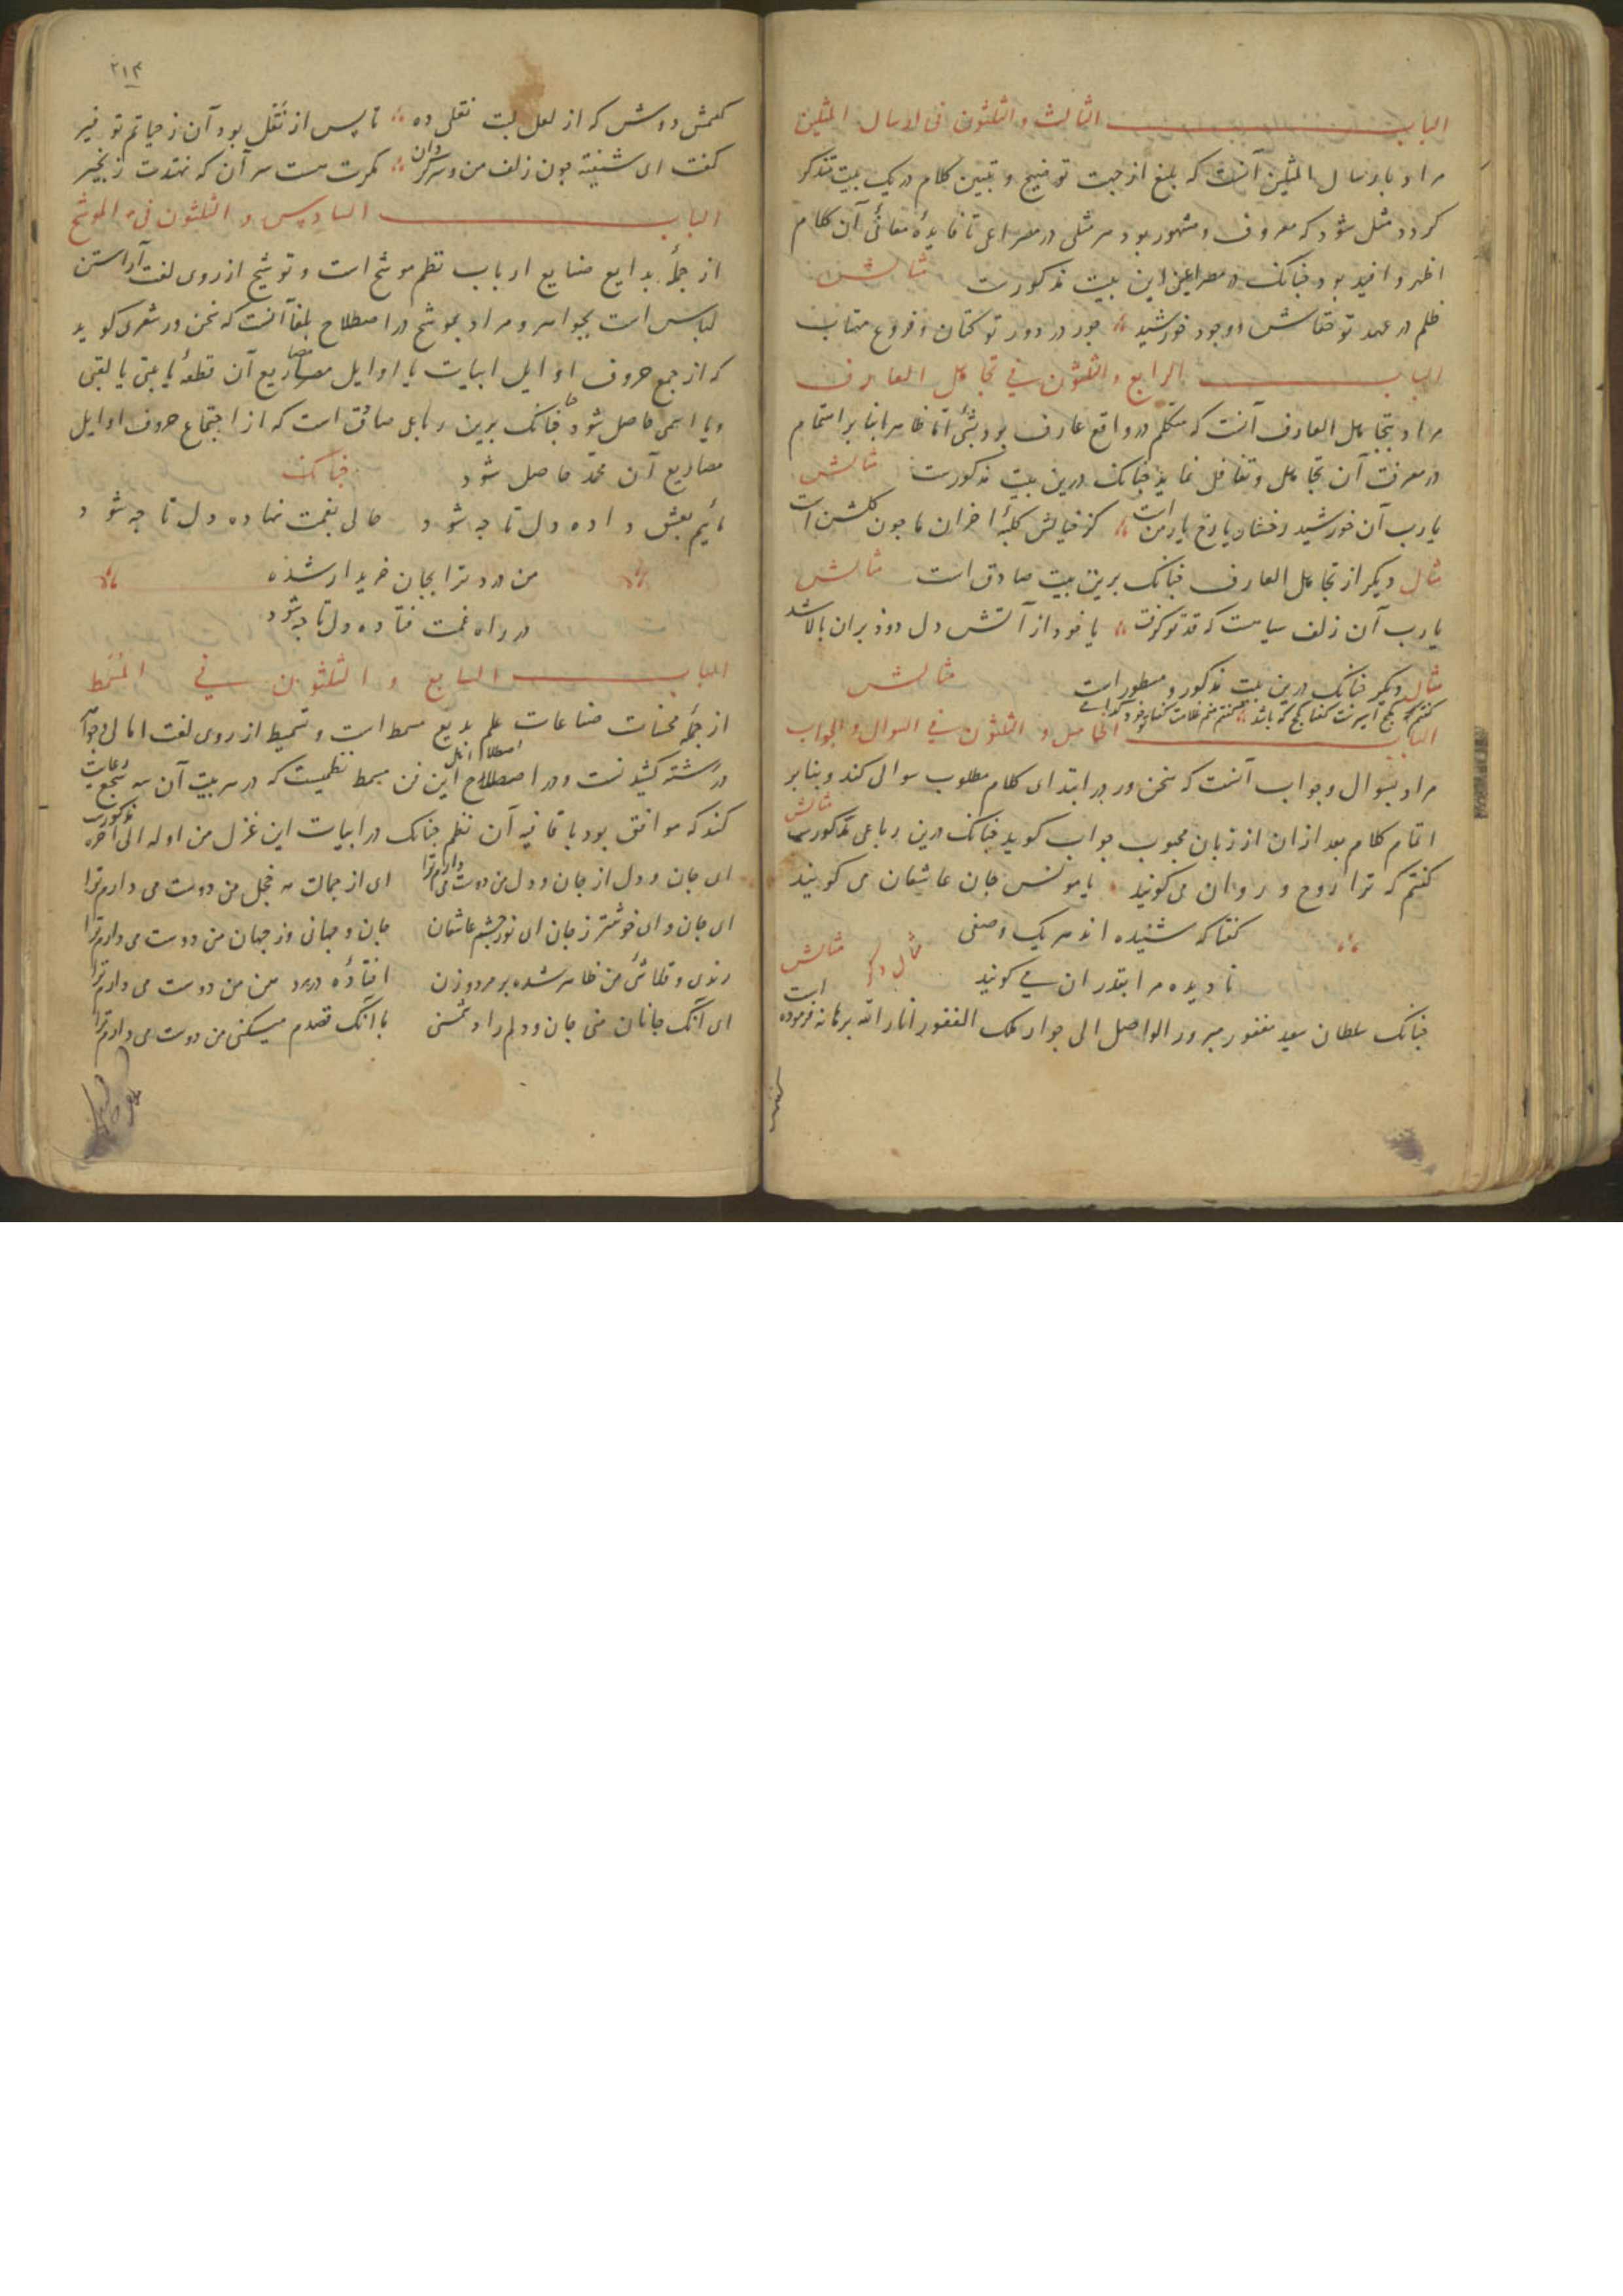 الباب الثالث والثلثون فی ارسال المثلین
مراد بارسال المثلین آنست که بلیغ از جهت توضیح و تبیین کلام در یک بیت متذکر
کردد مثل شود که معروف و مشهور بود هر مثلی در مصراعی تا فایدهٔ معانی آن کلام
اظهر و افید بود چنانک در مصراعین این بیت مذکورست مثالش
ظلم در عهد تو خفاش و وجود خورشید جور در دور تو کتان و فروغ مهتاب
الباب الرابع والثلثون فی تجاهل العارف
مراد بتجاهل العارف آنست که متکلم در واقع عارف بود بشیٔ اما ظاهرا بنابر اهتمام
در معرفت آن تجاهل و تغافل نماید چنانک درین بیت مذکورست مثالش
یا رب آن خورشید رخشان یا رخ یار منست کز خیالش کلبهٔ احزان ما چون کلشن است
مثال دیکر از تجاهل العارف چنانک برین بیت صادق است مثالش
یا رب آن زلف سیاهست که قد تو کرفت یا خود از آتش دل دود بران بالا شد
مثال دیکر چنانک درین بیت مذکور و مسطور است مثالش
الباب الخامس والثلثون فی السوال والجواب
مراد بسوال و جواب آنست که سخن ور در ابتدای کلام مطلوب سوال کند و بنابر
اتمام کلام بعد از ان از زبان محبوب جواب کوید چنانک درین رباعی مذکورست مثالش
کفتم که ترا روح و روان می کویند یا مونس جان عاشقان می کویند
کفتا که شنیده اند هر یک وصفی
نادیده مرا بقدر ان می کویند مثال دکر مثالش
چنانک سلطان سعید مغفور مبرور الواصل الی جوار ملک الغفور انار الله برهانه فرموده است
۲۱۴
کفتمش دوش که از لعل لبت نقلی ده تا پس از نقل بود آن ز حیاتم توفیر
کفت ای شیفته چون زلف من و سرکردان کمرت هست سر آن که نهندت زنجیر
الباب السادس والثلثون فی الموشح
از جملهٔ بدایع صنایع ارباب نظم موشح است و توشیح از روی لغت آراستن
لباس است بجواهر و مراد بموشح در اصطلاح بلغا آنست که سخن ور شعری کوید
که از جمع حروف اوایل ابیات یا اوایل مصاریع آن قطعهٔ یا بیتی یا لقبی
و یا اسمی حاصل شود چنانک برین رباعی صادق است که از اجتماع حروف اوایل
مصاریع آن محمد حاصل شود چنانک
مائیم بعشق داده دل تا چه شود حالی بغمت نهاده دل تا چه شود
من درد ترا بجان خریدار شده
در راه غمت فتاده دل تا چه شود
الباب السابع والثلثون فی المسمط
از جملهٔ محسنات صناعات علم بدیع مسمط است و تسمیط از روی لغت
در رشته کشیدنست و در اصطلاح اهل این فن مسمط نظمیست که در هر بیت آن سه سجع رعایت
کند که موافق بود با قافیه آن نظم چنانک در ابیات این غزل من اوله الی آخره مذکورست
ای جان و دل از جان و دل من دوست می دارم ترا ای از جمالت مه خجل من دوست می دارم ترا
ای جان و ای خوشتر ز جان ای نور چشم عاشقان جان و جهانی وز جهان من دوست می دارم ترا
رندی و قلاشیٔ من ظاهر شده بر مرد و زن افتاده در هر انجمن من دوست می دارم ترا
ای آنک جانان منی جان و دلم را دشمنی با آنک قصدم میکنی من دوست می دارم ترا